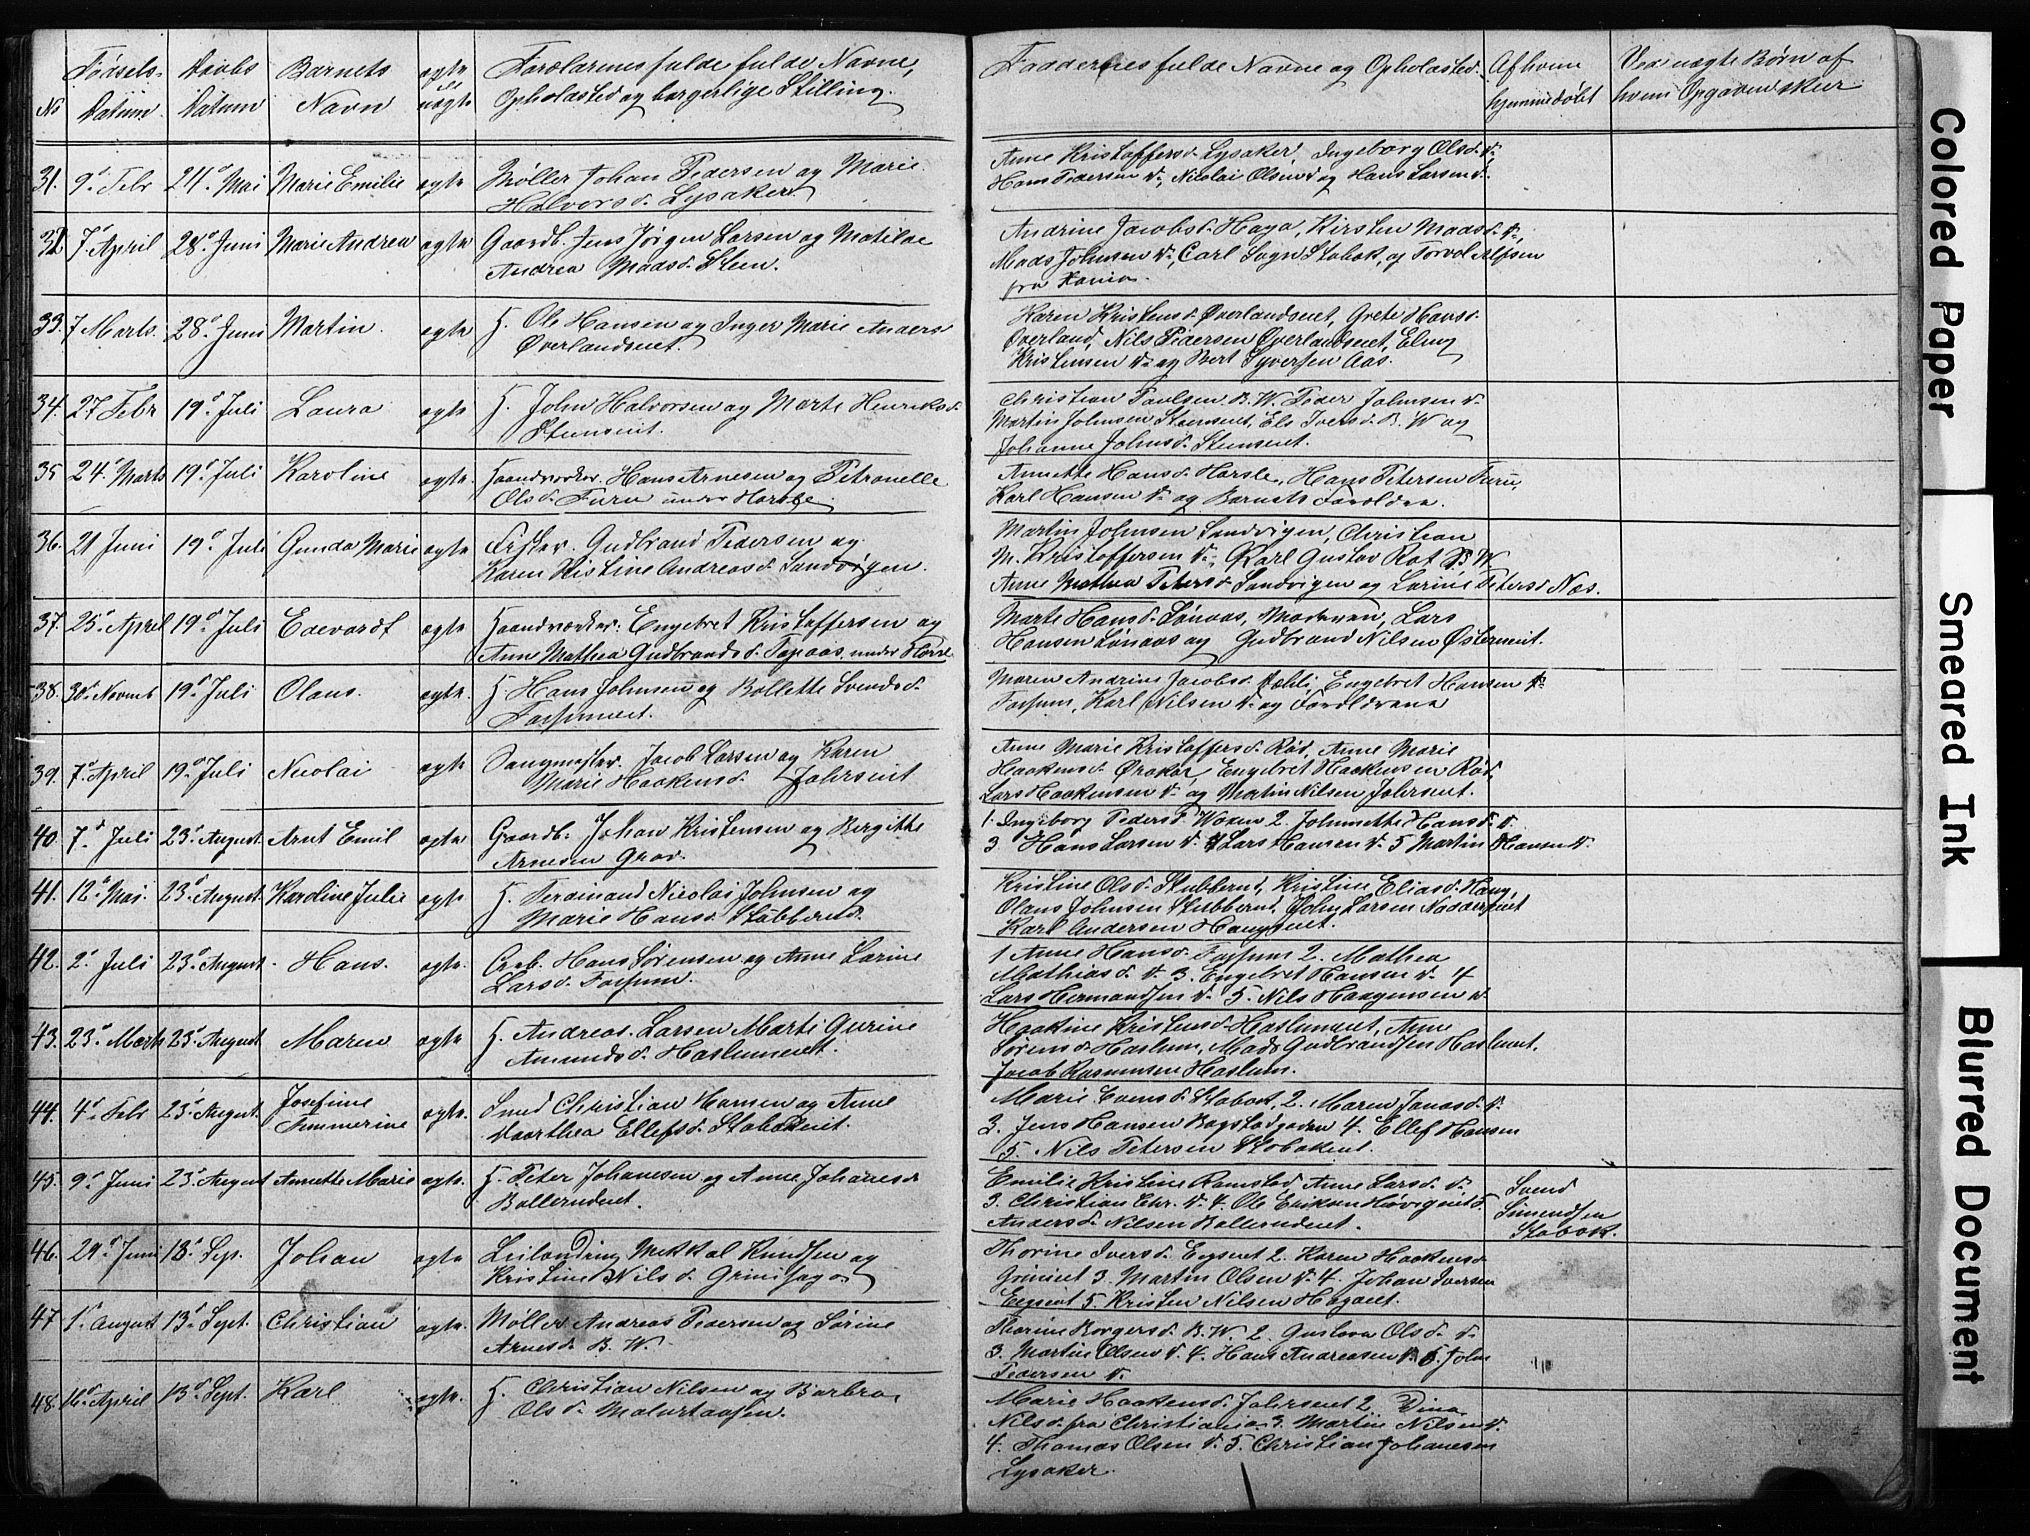 No
Fødsels-
Datum
Daabs
Datum
Barnets
Navn
ægte
el
uægte
Forældrenes fulde fulde Navne,
Opholdsted og borgerlige Stilling.
Faddernes fulde Navne og Opholdsted.
Af hvem
hjemmedøbt
Ved uægte Børn af
hvem Opgaven skeer
31. 9d Febr 24d Mai Marie Emilie ægte Møller Johan Pedersen og Marie
Halvorsd. Lysaker
Anne Kristoffersd. Lysaker, Ingeborg Olsd. d.
Hans Pedersen d., Nikolai Olsen d og Hans Larsen d.
32 7d April 28d Juni Marie Andrea ægte Gaardb. Jens Jørgen Larsen og Matilde
Andrea Madsd. Steen.
Andrine Jacobsd. Haga, Kirsten Madsd. d.,
Mads Johnsen d., Carl Stabæk, og Torvol Alfsen
fra
33. 7 Marts 28d Juni Martin. ægte H. Ole Hansen og Inger Marie Andersd
Øverlandseiet.
Karen Kristensd. Øverlandseiet, Grete Hansd.
Øverland, Nils Pedersen Øverlandseiet, Elling
Kristensen d. og Syversen Aas.
34. 27 Febr 19d Juli Laura ægte H. John Halvorsen og Marte Henriksd.
Christian Paulsen B. W. Peder Johnsen d.
Martin Johnsen Ele Iversd. B. W og
Johanne Johnsd.
35 24d Marts 19d Juli Karoline ægte Haandverker. Hans Arnesen og Petronelle
Olsd. Furu under Horsle
Annette Hansd. Horsle, Hans Petersen Furu,
Karl Hansen d. og Barnets Forældre.
36. 21 Juni 19d Juli Gunda Marie ægte Fisker. Gudbrand Pedersen og
Karen Kistine Andreasd. Sandvigen.
Martin Johnsen Sandvigen, Christian
M. Kristoffersen d., Karl Gustav Rot B. W.
Anne Mathea Petersd. Sandvigen og Larine Petersd. Næs.
37. 25d April 19d Juli Edevardt ægte Haandværker. Engebret Kristoffersen og
Anne Mathea Gudbrandsd. under
Marte Hansd. Lønaas, Lars
Hansen Lønaas og Gudbrand Nilsen
38. 30d Novemb 19d Juli Olaus. ægte. H. Hans Johnsen og Bollette Svendsd.
Fossumeiet.
Maren Andrine Jacobsd. Engebret Hansen
Fossum, Karl Nilsen d. og Forældrene
39. 7d April 19d Juli Nicolai ægte Sangmester. Jacob Larsen og Karen
Marie Haakensd. Jahrseiet
Anne Marie Kristoffersd. Rød, Anne Marie
Haakensd. Engebret Haakensen Rød,
Lars Haakensen d. og Martin Nilsen Jahrseiet.
40. 7d Juli 23d August Arnt Emil ægte Gaardb. Johan Kristensen og Bergitte
Arnesen Grav.
1. Ingeborg Pedersd. Voxen 2. Johnnette Hansd. d.
3 Hans Larsen d. 4 Lars Hansen d. 5 Martin Hansen d.
41. 12d Mai. 23d August. Karoline Julie ægte H. Ferdinand Nicolai Johnsen og
Marie Hansd. Stubberud.
Kristine Olsd. Stubberud, Kristine Eliasd. Haug,
Olaus Johnsen Stubberud, John Larsen Nadderueiet
Karl Andersen Haugseiet.
42. 2d Juli 23d August. Hans. ægte. Arb. Hans Sørensen og Anne Larine
Larsd. Fossum.
1 Anne Hansd. Fossum 2. Mathea
Mathiasd. d. 3. Engebret Hansen d. 4
Lars Hermandsen d. 5. Nils Haagensen d.
43. 23d Marts 23d August Maren ægte. H. Andreas Larsen Marte Gurine
Amundsd. Haslumeiet.
Haakine Kristensd. Haslumeiet, Anne
Sørensd. Haslum, Mads Gudbrandsen Haslumeiet.
Jacob Rasmussen Haslum.
44. 4d Febr 23d August Josefine
Femmerine ægte. Smed Christian Hansen og Anne
Daarthea Ellefsd. Stabækeiet.
Marie Evensd. Stabæk, 2. Maren Jonasd. d.
3. Jens Hansen Bogstadgaden 4. Ellef Hansen
5. Nils Petersen Stabækeiet.
45. 9d Juni 23d August Annette Marie ægte. H. Peter Johanesen og Anne Johanesd
Ballerudeiet.
Emilie Kristine Ramstad, Anne Larsd. d.
3. Christian Chr. d. 4. Ole Eriksen Høvigeiet
Andersd. Nilsen Ballerudeiet.
Svend
Simensen
Stabæk.
46. 29d Juni 13d Sep. Johan ægte Leilænding Mikkal Knudsen og
Kristine Nilsd. Grinisaga
Thorine Iversd. 2. Karen Haakensd
Grinieiet 3. Martin Olsen d. 4. Johan Iversen
5. Kristen Nilsen Hagaeiet.
47 1d August 13d Sept. Christian ægte. Møller Andreas Pedersen og Sørine
Arnesd. B. W.
Thorine Borgersd. B. W. 2. Gustava Olsd. d.
3. Martin Olsen d. 4. Hans Andreasen d. 5. John
Pedersen d.
48. 16d April 13d Sept. Karl ægte. H. Christian Nilsen og Barbra
Olsd.
Marie Haakensd. Jahrseiet 2. Dina
Nilsd. fra Christiania 3. Martin Nilsen d.
4. Thomas Olsen d. 5. Christian Johanesen
Lysaker.
Colored Paper
Smeared Ink
Blurred Document